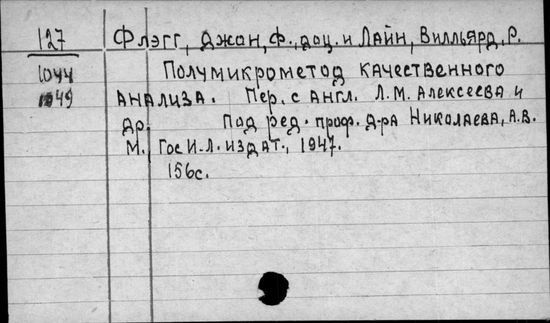 127 Флэгг, Джон, Ф., доц. и Лайн, Вилльярд, Р.
1044 Полумикрометод качественного
1949 анализа. Пер. с англ. Л.М. Алексеева и
др. Под ред. проф. д-ра Николаева, А.В.
М., Гос И-Л. издат., 1947.
156с.